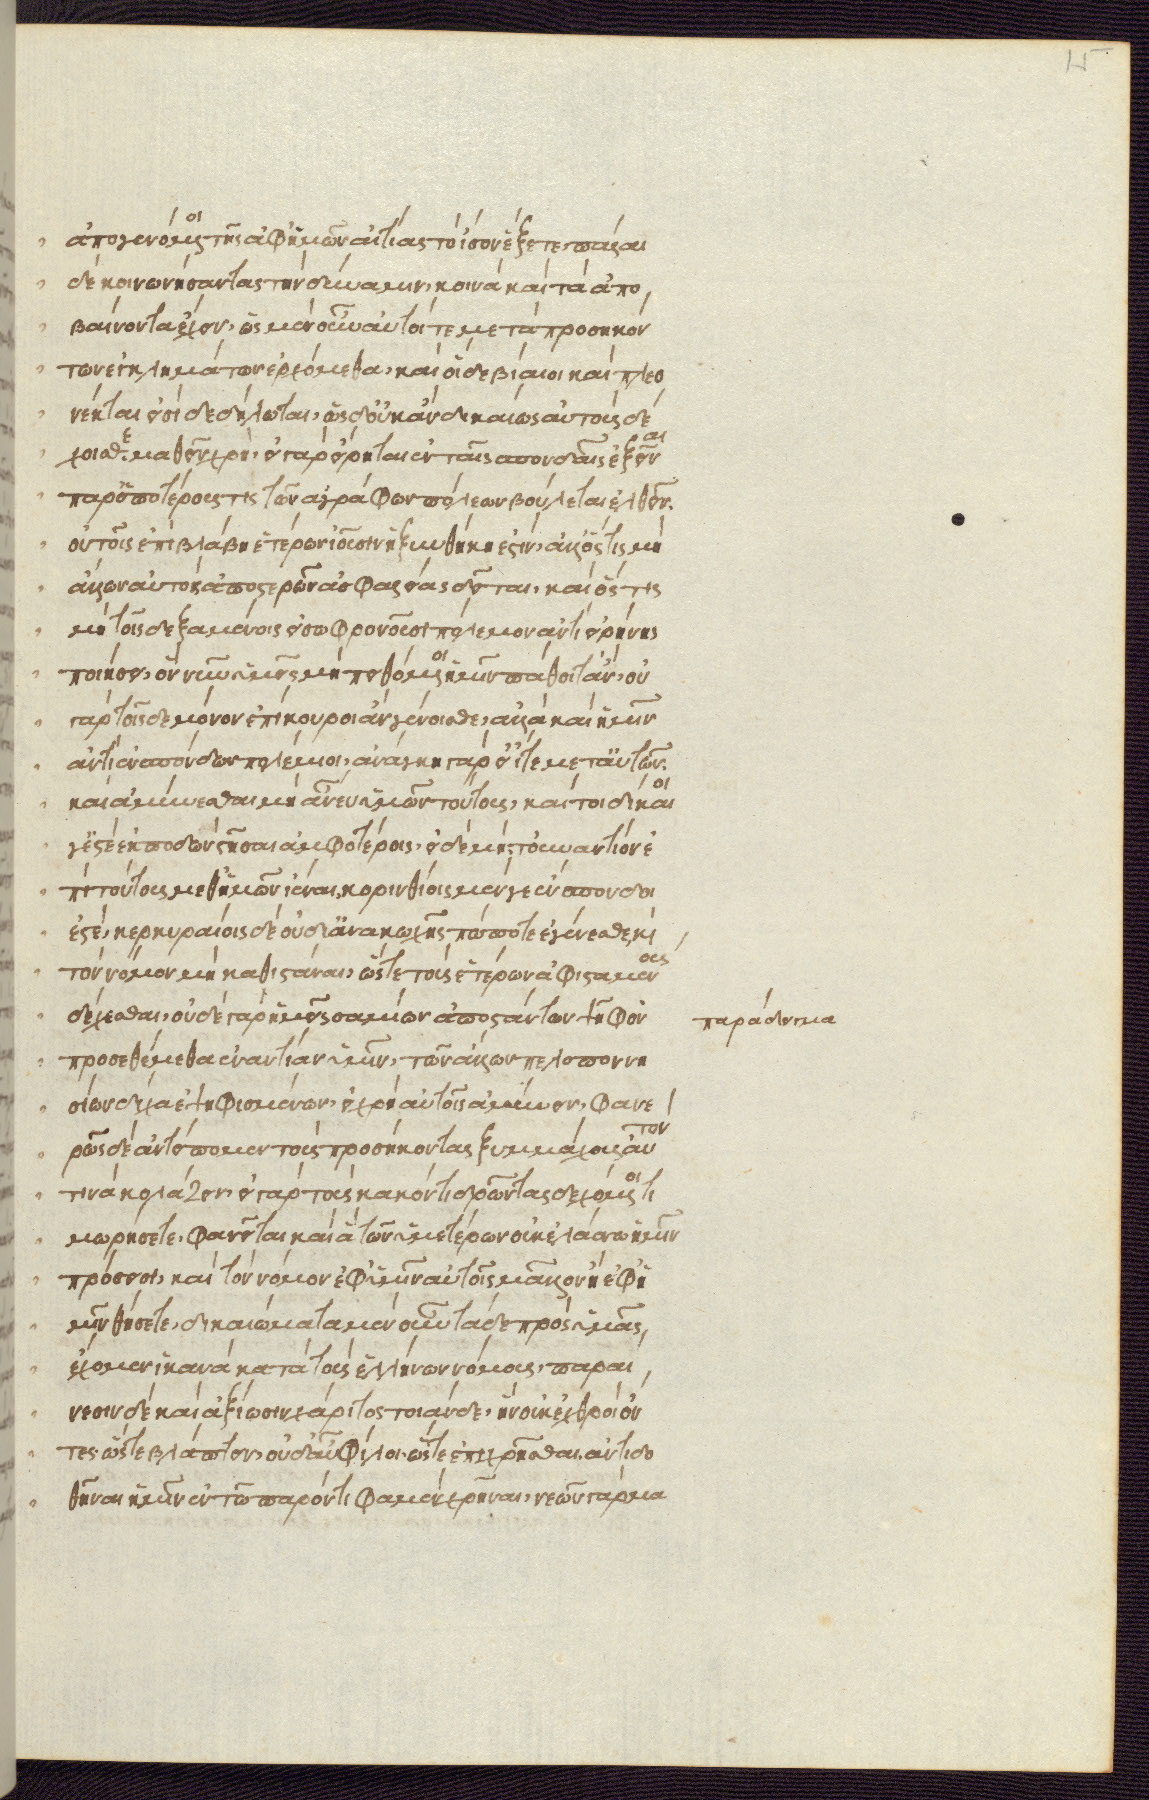 ἀπογενόμενοι τῆς ἀφ' ἡμῶν αἰτίας τὸ ἴσον ἕξετε πάλαι
δὲ κοινωνήσαντας τὴν δύναμιν, κοινὰ καὶ τὰ ἀπο
βαίνοντα ἔχειν, ὡς μὲν οὖν αὐτοί τε μετὰ προσηκόν
των ἐγκλημάτων ἐρχόμεθα, καὶ οἵδε βίαιοι καὶ πλεο
νέκται εἰσὶ δεδήλωται, ὡς δ' οὐκ ἂν δικαίως αὐτοὺς δέ
χοισθε μαθεῖν χρή, εἰ γὰρ εἴρηται ἐν ταῖς σπονδαῖς ἐξεῖναι
παρ' ὁποτέρους τις τῶν ἀγράφων πόλεων βούλεται ἐλθεῖν.
οὐ τοῖς ἐπὶ βλάβῃ ἑτέρων ἰοῦσιν ἡ ξυνθήκη ἐστίν, ἀλλ' ὅστις μὴ
ἄλλων αὑτὸν ἀποστερῶν ἀσφαλείας δεῖται, καὶ ὅστις
μὴ τοῖς δεξαμένοις εἰ σωφρονοῦσι πόλεμον ἀντ' εἰρήνης
ποιήσει, ὃ νῦν ὑμεῖς μὴ πειθόμενοι ἡμῖν πάθοιτ' ἄν, οὐ
γὰρ τοῖσδε μόνον ἐπίκουροι ἂν γένοισθε, ἀλλὰ καὶ ἡμῖν
ἀντὶ ἐνσπόνδων πολέμιοι, ἀνάγκη γὰρ εἰ ἴτε μετ' αὐτῶν.
καὶ ἀμύνεσθαι μὴ ἄνευ ὑμῶν τούτους, καίτοι δίκαιοι
γ' ἐστὲ ἐκποδὼν στῆναι ἀμφοτέροις, εἰ δὲ μὴ τοὐναντίον ἐ
πὶ τούτους μεθ' ἡμῶν ἰέναι, κορινθίοις μέν γε ἔνσπονδοι
ἐστὲ, κερκυραίοις δὲ οὐδὲ δι' ἀνακωχῆς πώποτε ἐγένεσθε, καὶ
τὸν νόμον μὴ καθιστάναι, ὥστε τοὺς ἑτέρων ἀφισταμένους
δέχεσθαι, οὐδὲ γὰρ ἡμεῖς σαμίων ἀποστάντων ψῆφον παράδειγμα
προσεθέμεθα ἐναντίαν ὑμῖν, τῶν ἄλλων πελοποννη
σίων δίχα ἐψηφισμένων, εἰ χρὴ αὐτοῖς ἀμύνειν, φανε
ρῶς δὲ ἀντείπομεν τοὺς προσήκοντας ξυμμάχους αὐτόν
τινα κολάζειν, εἰ γὰρ τοὺς κακόν τι δρῶντας δεχόμενοι τι
μωρήσετε, φανεῖται καὶ ἃ τῶν ὑμετέρων οὐκ ἐλάσσω ἡμῖν
πρόσεισι, καὶ τὸν νόμον ἐφ' ὑμῖν αὐτοῖς μᾶλλον ἢ ἐφ' ἡ
μῖν θήσετε, δικαιώματα μὲν οὖν τάδε πρὸς ὑμᾶς,
ἔχομεν ἱκανὰ κατὰ τοὺς ἑλλήνων νόμους, παραί
νεσιν δὲ καὶ ἀξίωσιν χάριτος τοιάνδε, ἣν οὐκ ἐχθροὶ ὄν
τες ὥστε βλάπτειν, οὐδ' αὖ φίλοι ὥστε ἐπιχρῆσθαι, ἀντιδο
θῆναι ἡμῖν ἐν τῷ παρόντι φαμὲν χρῆναι, νεῶν γὰρ μα